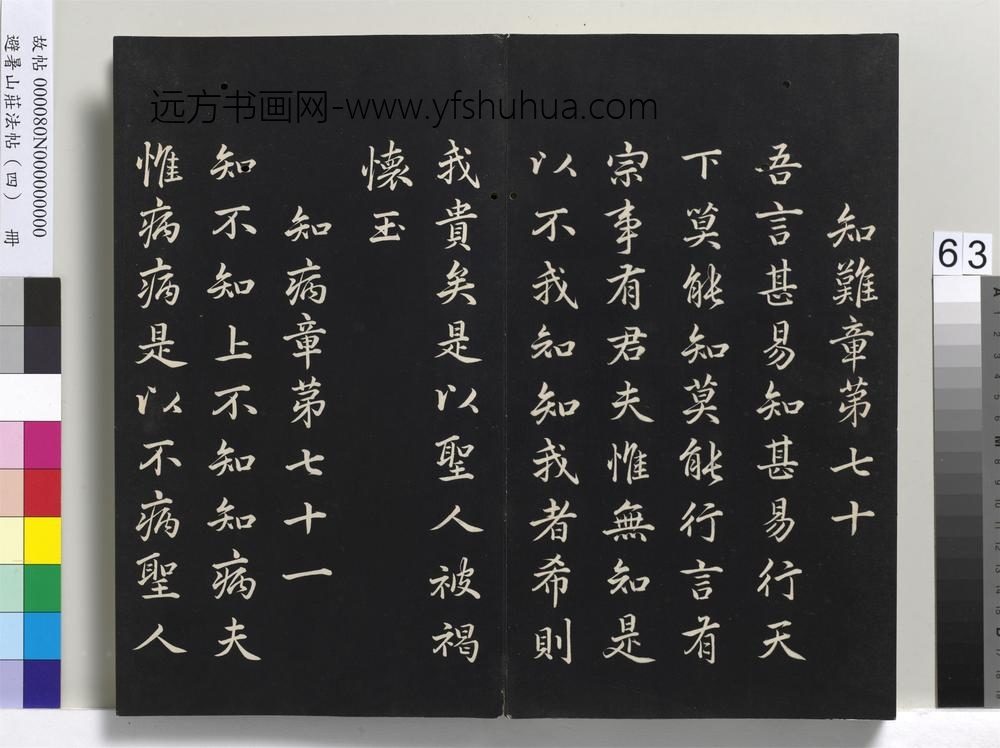 知難章第七十
吾言甚易知甚易行天
下莫能知莫能行言有
宗事有君夫惟無知是
以不我知知我者希則
我貴矣是以聖人被褐
懷玉
知病章第七十一
知不知上不知知病夫
惟病病是以不病聖人
远方书画网-www.yfshuhua.com
故帖 000080N000000000
避暑山莊法帖（四） 冊
63